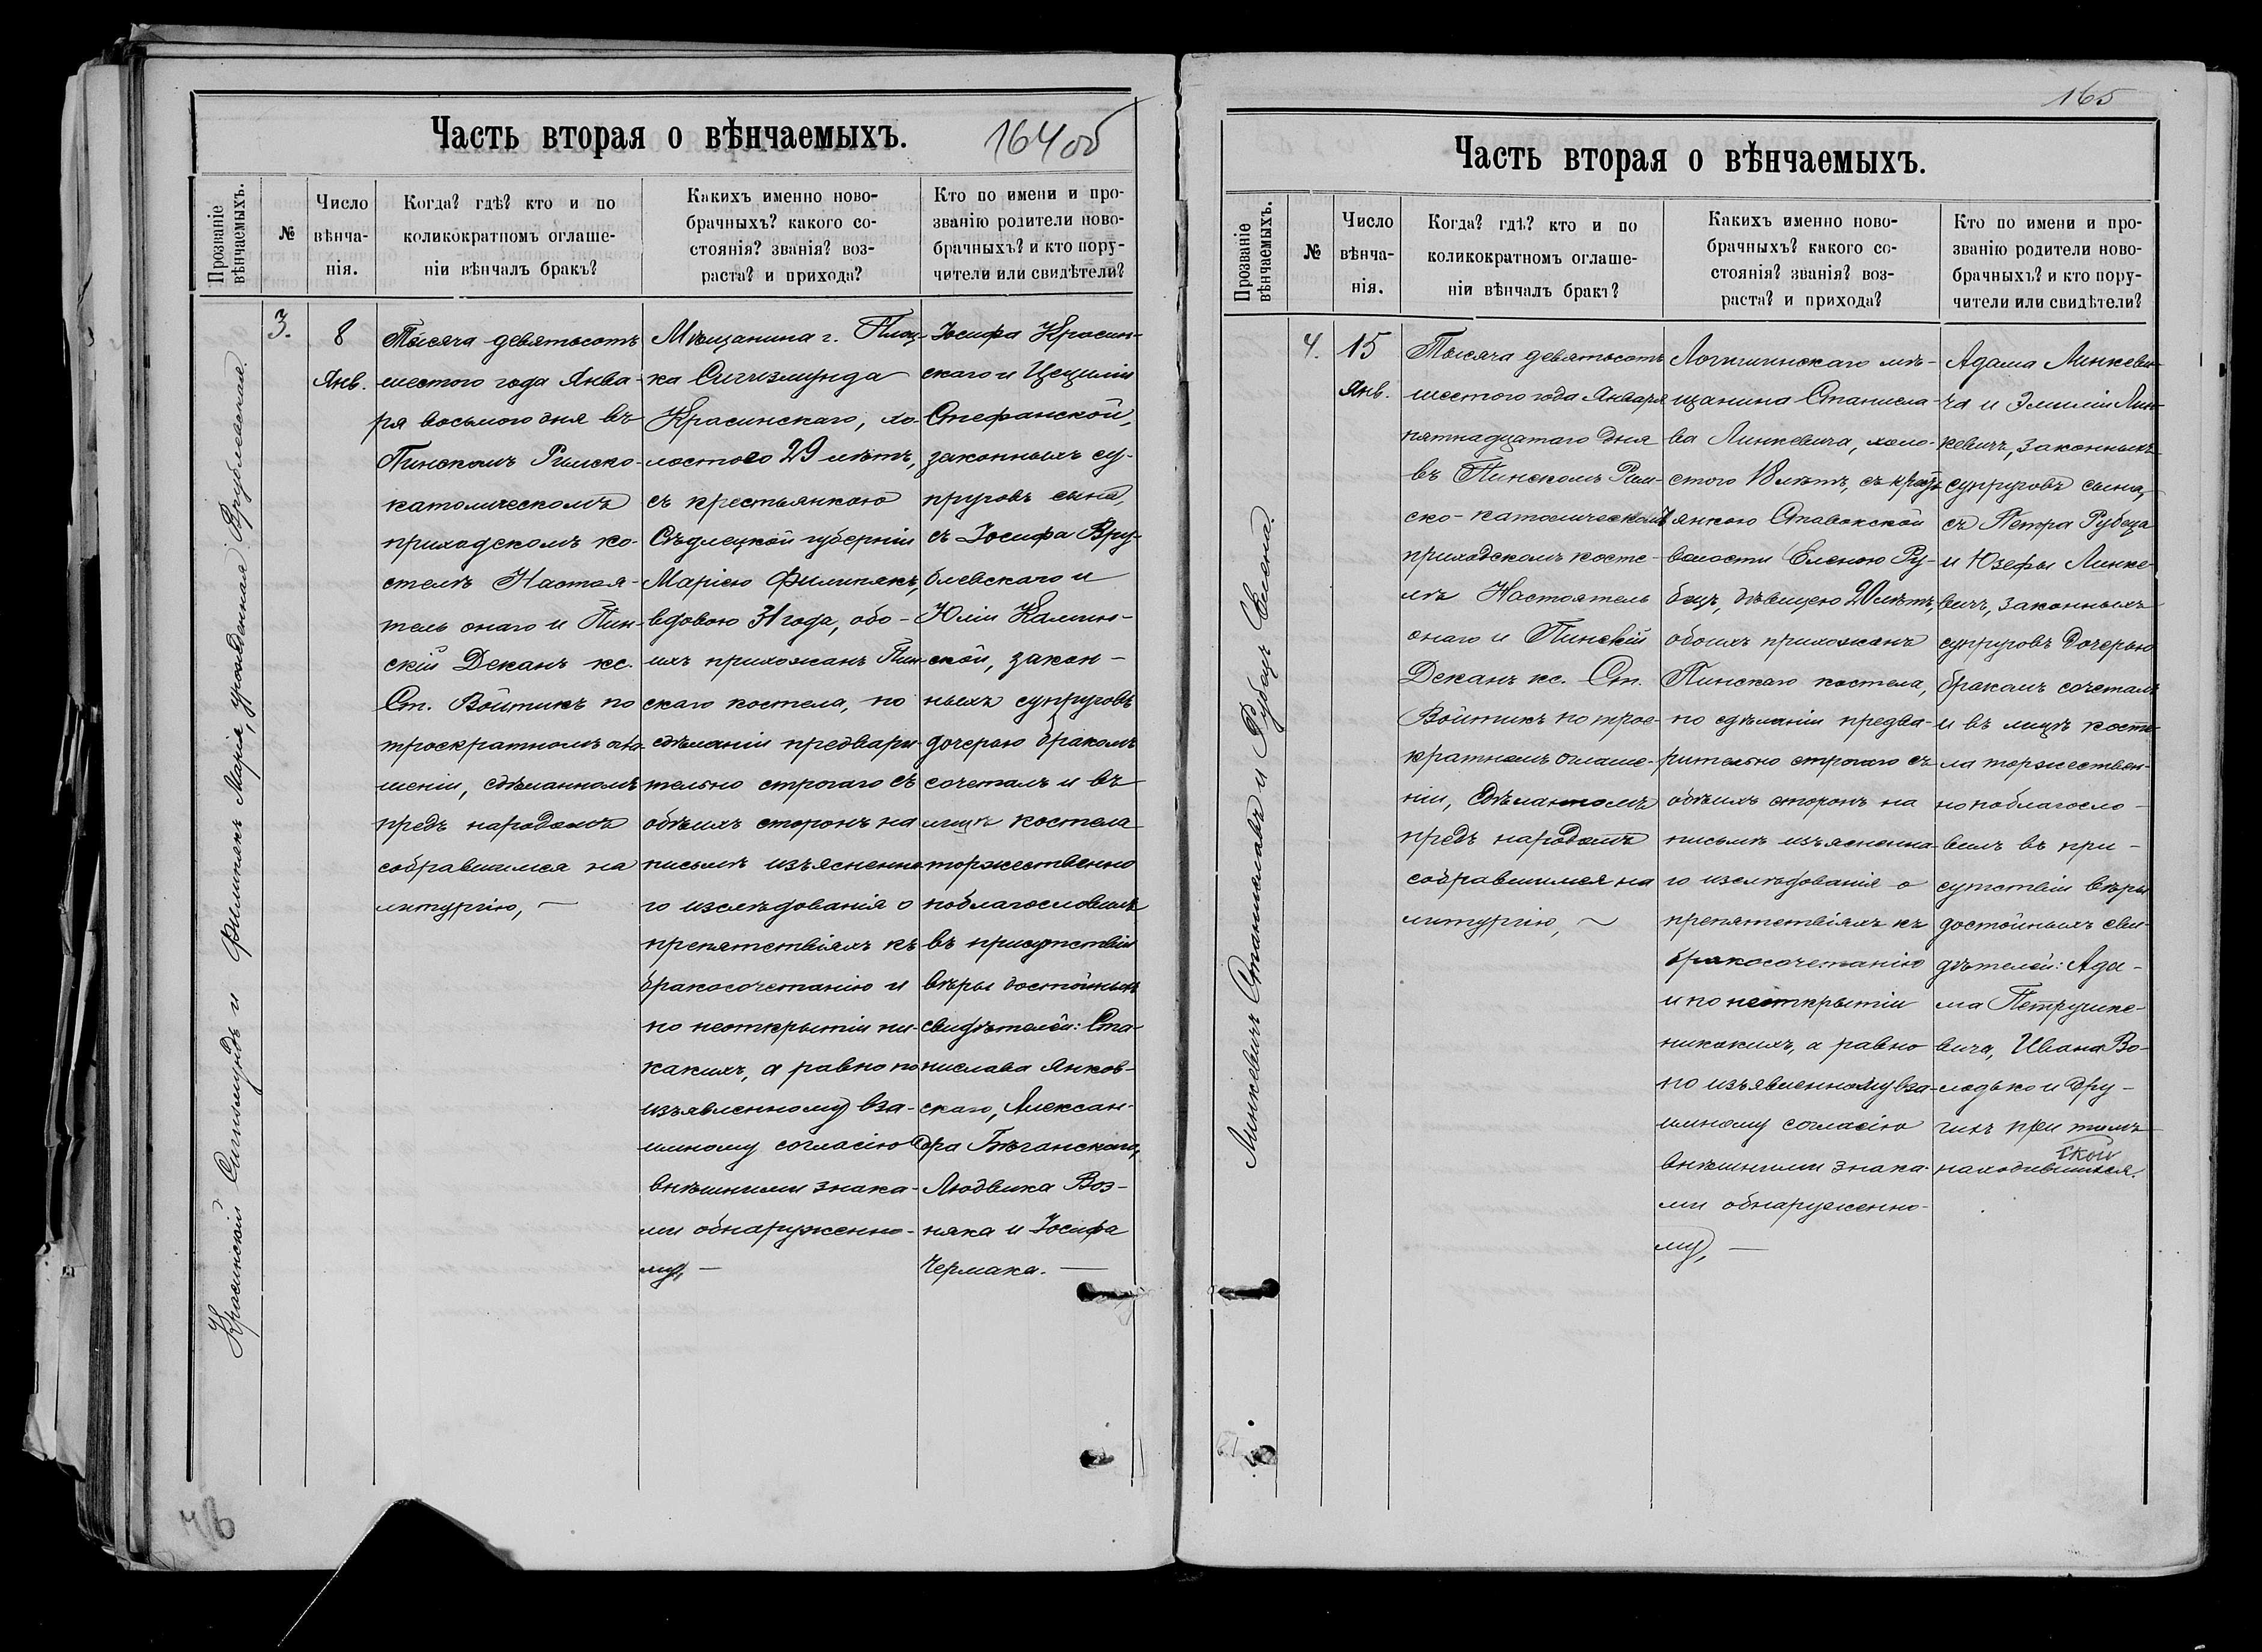 Часть вторая о вѣнчаемыхъ.
164об
Прозваніе
вѣнчаемыхъ.
№
Число
вѣнча-
нія.
Когда? гдѣ? кто и по
коликократномъ оглаше-
ніи вѣнчалъ бракъ?
Какихъ именно ново-
брачныхъ? какого со-
стоянія? званія? воз-
раста? и прихода?
Кто по имени и про-
званію родители ново-
брачныхъ? и кто пору-
чители или свидѣтели?
Красинскій Сигизмундъ и Филипякъ Марія, урожденная Врублевская.
3.
8
Янв.
Тысяча девятьсотъ
шестого года Янва-
ря восьмого дня въ
Пинскомъ Римско-
католическомъ
приходскомъ ко-
стелѣ Настоя-
тель онаго и Пин-
скій Деканъ кс.
Ст. Войтикъ по
троекратномъ огла-
шеніи, сдѣланномъ
предъ народомъ
собравшимся на
литургію, —
Мѣщанина г. Плоц-
ка Сигизмунда
Красинскаго, хо-
лостого 29 лѣтъ,
съ крестьянкою
Сѣдлецкой губерніи
Маріею Филипякъ,
вдовою 31 года, обо-
ихъ прихожанъ Пин-
скаго костела, по
сдѣланіи предвари-
тельно строгаго съ
обѣихъ сторонъ на
письмѣ изъясненна-
го изслѣдованія о
препятствіяхъ къ
бракосочетанію и
по неоткрытіи ни-
какихъ, а равно по
изъявленному вза-
имному согласію
внѣшними знака-
ми обнаруженно-
му, —
Іосифа Красин-
скаго и Цециліи
Стефанской,
законныхъ су-
пруговъ сына,
съ Іосифа Вру-
блевскаго и
Юліи Камин-
ской, закон-
ныхъ супруговъ
дочерью бракомъ
сочеталъ и въ
лицѣ костела
торжественно
поблагословилъ
въ присутствіи
вѣры достойныхъ
свидѣтелей: Ста-
нислава Янков-
скаго, Алексан-
дра Бѣганскаго,
Людвика Воз-
няка и Іосифа
Чермака. —
165
Часть вторая о вѣнчаемыхъ.
Прозваніе
вѣнчаемыхъ.
№
Число
вѣнча-
нія.
Когда? гдѣ? кто и по
коликократномъ оглаше-
ніи вѣнчалъ бракъ?
Какихъ именно ново-
брачныхъ? какого со-
стоянія? званія? воз-
раста? и прихода?
Кто по имени и про-
званію родители ново-
брачныхъ? и кто пору-
чители или свидѣтели?
Линкевичъ Станиславъ и Рубецъ Елена.
4.
15
Янв.
Тысяча девятьсотъ
шестого года Января
пятнадцатаго дня
въ Пинскомъ Рим-
ско-католическомъ
приходскомъ косте-
лѣ Настоятель
онаго и Пинскій
Деканъ кс. Ст.
Войтикъ по трое-
кратномъ оглаше-
ніи, сдѣланномъ
предъ народомъ
собравшимся на
литургію, ~
Логишинскаго мѣ-
щанина Станисла-
ва Линкевича, холо-
стого 18 лѣтъ, съ кресть-
янкою Ставокской
волости Еленою Ру-
бецъ, дѣвицею 20 лѣтъ,
обоихъ прихожанъ
Пинскаго костела,
по сдѣланіи предва-
рительно строгаго съ
обѣихъ сторонъ на
письмѣ изъясненна-
го изслѣдованія о
препятствіяхъ къ
бракосочетанію
и по неоткрытіи
никакихъ, а равно
по изъявленному вза-
имному согласію
внѣшними знака-
ми обнаруженно-
му, —
Адама Линкеви-
ча и Эмиліи Лин-
кевичъ, законныхъ
супруговъ сына,
съ Петра Рубеца
и Юзефы Линке-
вичъ, законныхъ
супруговъ дочерью
бракомъ сочеталъ
и въ лицѣ косте-
ла торжествен-
но поблагосло-
вилъ въ при-
сутствіи вѣры
достойныхъ сви-
дѣтелей: Ада-
ма Петрушке-
вича, Ивана Во-
лодько и дру-
гихъ при томъ
находившихся.